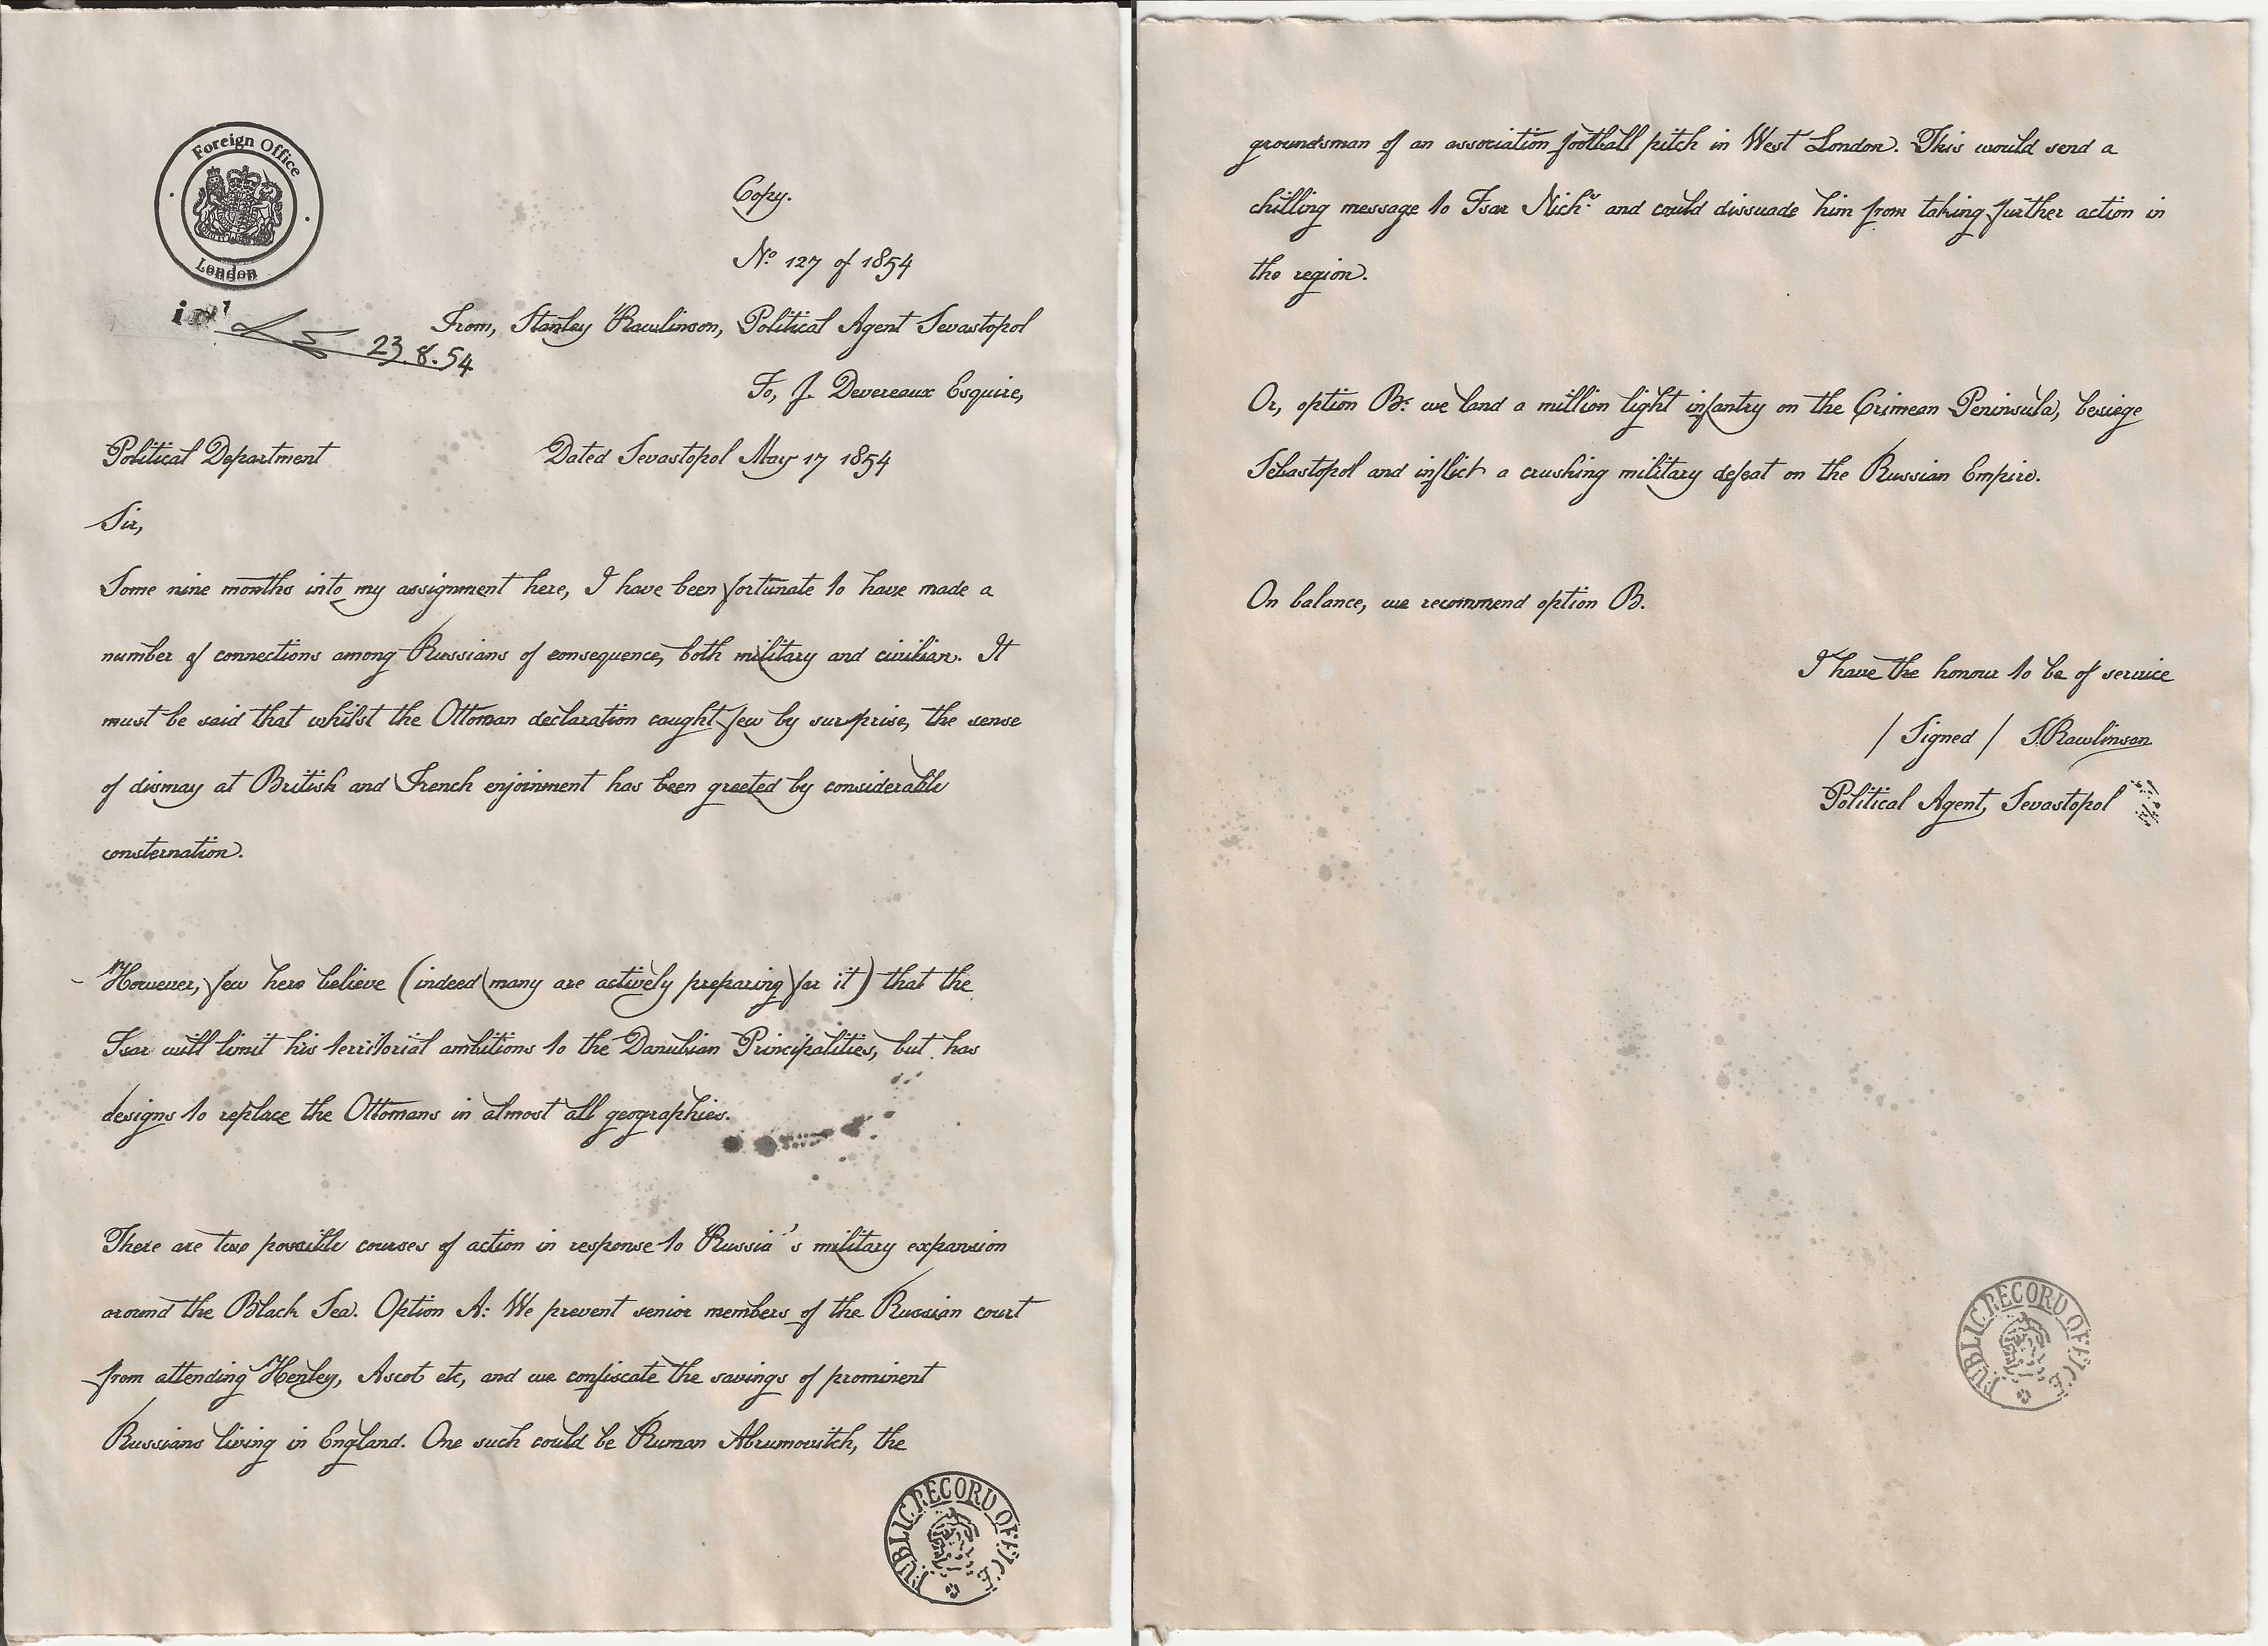 Foreign Office
London
Copy.
Nº 127 of 1854
From, Stanley Rawlinson, Political Agent Sevastopol
23.8.54
To, J. Devereaux Esquire,
Political Department
Dated Sevastopol May 17 1854
Sir,
Some nine months into my assignment here, I have been fortunate to have made a
number of connections among Russians of consequence, both military and civilian. It
must be said that whilst the Ottoman declaration caught few by surprise, the sense
of dismay at British and French enjoinment has been greeted by considerable
consternation.
However, few here believe (indeed many are actively preparing for it) that the
Tsar will limit his territorial ambitions to the Danubian Principalities, but has
designs to replace the Ottomans in almost all geographies.
There are two possible courses of action in response to Russia's military expansion
around the Black Sea. Option A: We prevent senior members of the Russian court
from attending Henley, Ascot etc, and we confiscate the savings of prominent
Russians living in England. One such could be Ruman Abrumovitch, the
PUBLIC RECORD OFFICE
groundsman of an association football pitch in West London. This would send a
chilling message to Tsar Nichˢ and could dissuade him from taking further action in
the region.
Or, option B: we land a million light infantry on the Crimean Peninsula, besiege
Sebastopol and inflict a crushing military defeat on the Russian Empire.
On balance, we recommend option B.
I have the honour to be of service
/ Signed / S.Rawlinson
Political Agent, Sevastopol
PUBLIC RECORD OFFICE